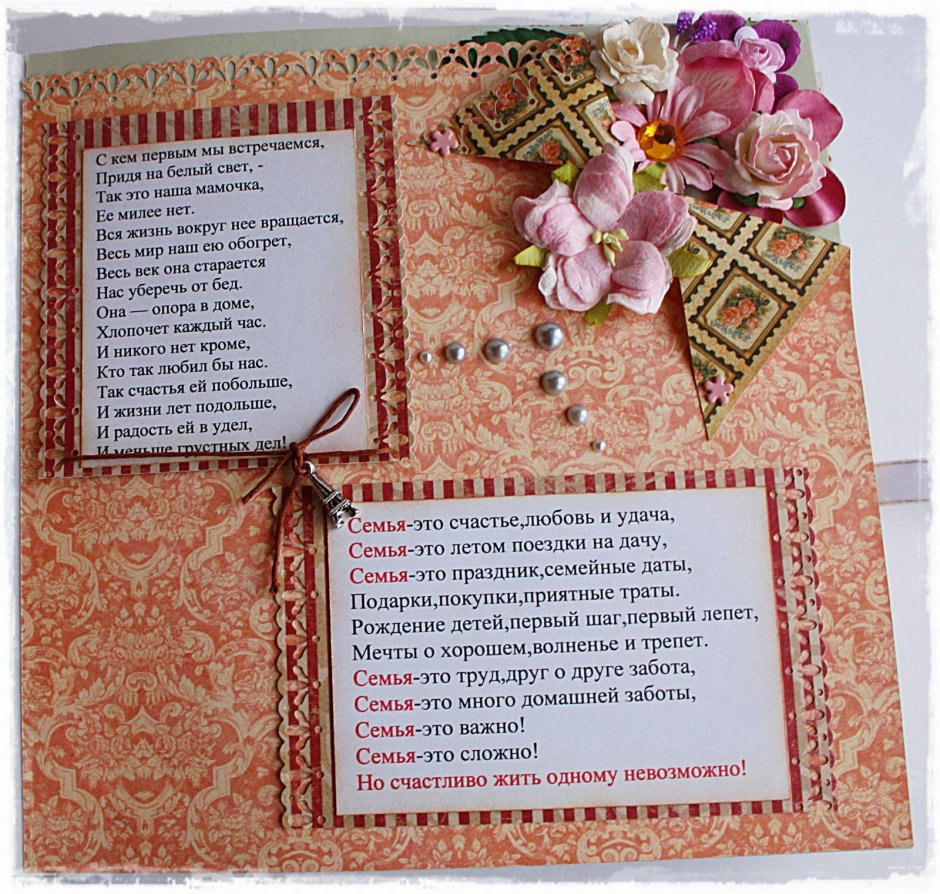 С кем первым мы встречаемся,
Придя на белый свет, -
Так это наша мамочка,
Ее милее нет.
Вся жизнь вокруг нее вращается,
Весь мир наш ею обогрет,
Весь век она старается
Нас уберечь от бед.
Она — опора в доме,
Хлопочет каждый час.
И никого нет кроме,
Кто так любил бы нас.
Так счастья ей побольше,
И жизни лет подольше,
И радость ей в удел,
И меньше грустных дел!
Семья-это счастье,любовь и удача,
Семья-это летом поездки на дачу,
Семья-это праздник,семейные даты,
Подарки,покупки,приятные траты.
Рождение детей,первый шаг,первый лепет,
Мечты о хорошем,волненье и трепет.
Семья-это труд,друг о друге забота,
Семья-это много домашней заботы,
Семья-это важно!
Семья-это сложно!
Но счастливо жить одному невозможно!